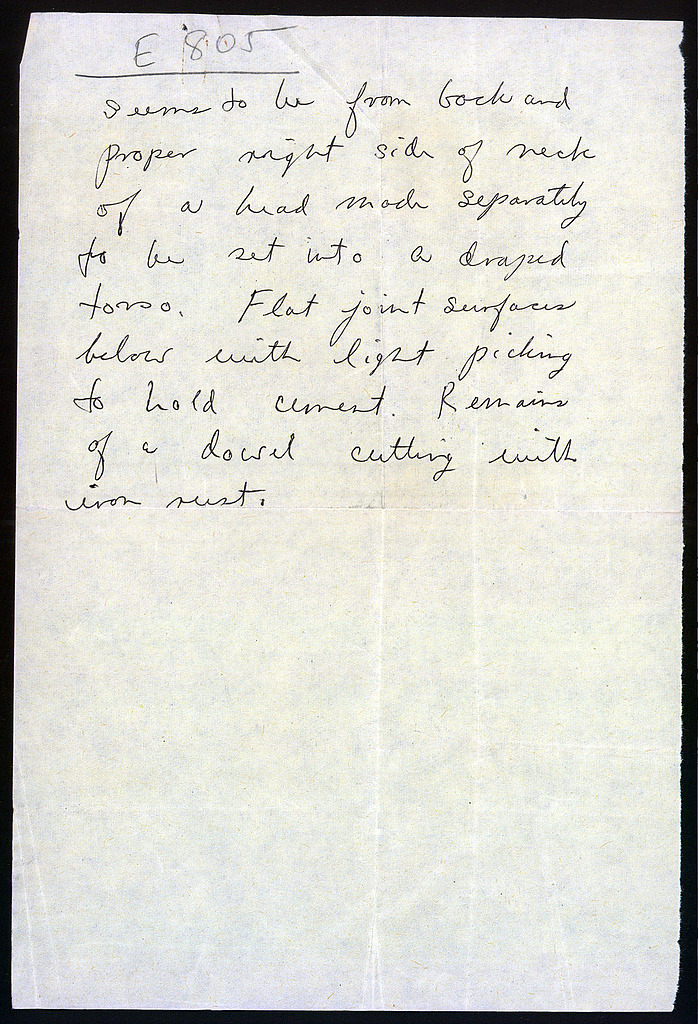 E 805
seems to be from back and
proper right side of neck
of a head made separately
to be set into a draped
torso. Flat joint surfaces
below with light picking
to hold cement. Remains
of a dowel cutting with
iron rust.